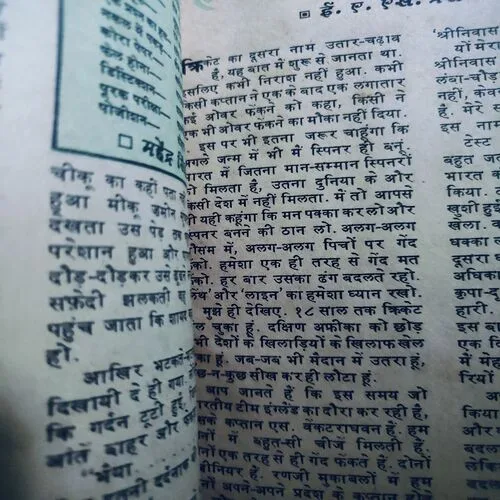 नकल में पकड़
कोरा पेपर—
फेल होना—
डिस्टिंक्शन
पूरक परीक्षा—
पोजीशन—
□ महेंद्र
चीकू का कहीं पता
हुआ मीकू जमीन
देखता उस पेड़ तक
परेशान हुआ और
दौड़-दौड़कर उसे ढूंढ
सफ़ेदी झलकती
पहुंच जाता कि शायद
हो.
आखिर भटकते-
दिखायी दे ही गया.
कि गर्दन टूटी हुई,
आंतें बाहर और
"भैया
इतनी दर्दनाक
□ ई. ए. एस.
क्रिकेट का दूसरा नाम उतार-चढ़ाव
है, यह बात में शुरू से जानता था.
इसलिए कभी निराश नहीं हुआ. कभी
किसी कप्तान ने एक के बाद एक लगातार
कई ओवर फेंकने को कहा, किसी ने
एक भी ओवर फेंकने का मौका नहीं दिया.
इस पर भी इतना जरूर चाहूंगा कि
अगले जन्म में भी मैं स्पिनर ही बनूं.
भारत में जितना मान-सम्मान स्पिनरों
को मिलता है, उतना दुनिया के और
किसी देश में नहीं मिलता. मैं तो आपसे
भी यही कहूंगा कि मन पक्का कर लो और
स्पिनर बनने की ठान लो. अलग-अलग
मौसम में, अलग-अलग पिचों पर गेंद
फेंको. हमेशा एक ही तरह से गेंद मत
फेंको. हर बार उसका ढंग बदलते रहो.
'लेंथ' और 'लाइन' का हमेशा ध्यान रखो.
मुझे ही देखिए. १८ साल तक क्रिकेट
खेल चुका हूं. दक्षिण अफ्रीका को छोड़
सभी देशों के खिलाड़ियों के खिलाफ खेल
चुका हूं. जब-जब भी मैदान में उतरा हूं,
कुछ-न-कुछ सीख कर ही लौटा हूं.
आप जानते हैं कि इस समय जो
भारतीय टीम इंग्लैंड का दौरा कर रही है,
उसके कप्तान एस. वेंकटराघवन हैं. हम
दोनों में बहुत-सी चीजें मिलती हैं.
दोनों एक तरह से ही गेंद फेंकते हैं. दोनों
इंजीनियर हैं. रणजी मुकाबलों में हम
दोनों अपने-अपने प्रदेश के कप्तान
'श्रीनिवास
यों मेरा
श्रीनिवास
लंबा-चौड़ा
नहीं, केवल
है. मेरे
इस नाम
टेस्ट
बहुत ज
भारत क
किया.
खुशी हुई
खेला.
धक्का
दूसरा
अधिक
कृपा-द
है. हमारी
इस बा
एक में
मैं मेह
रियों
किया
अत
बदल
लेकि
बदल